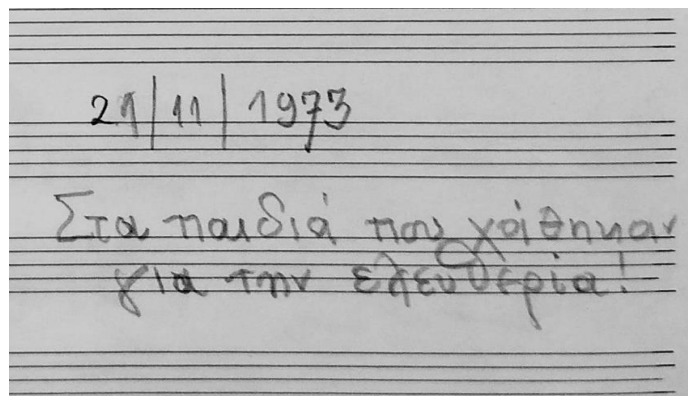 21/11/1973
Στα παιδιά που χάθηκαν
για την ελευθερία!